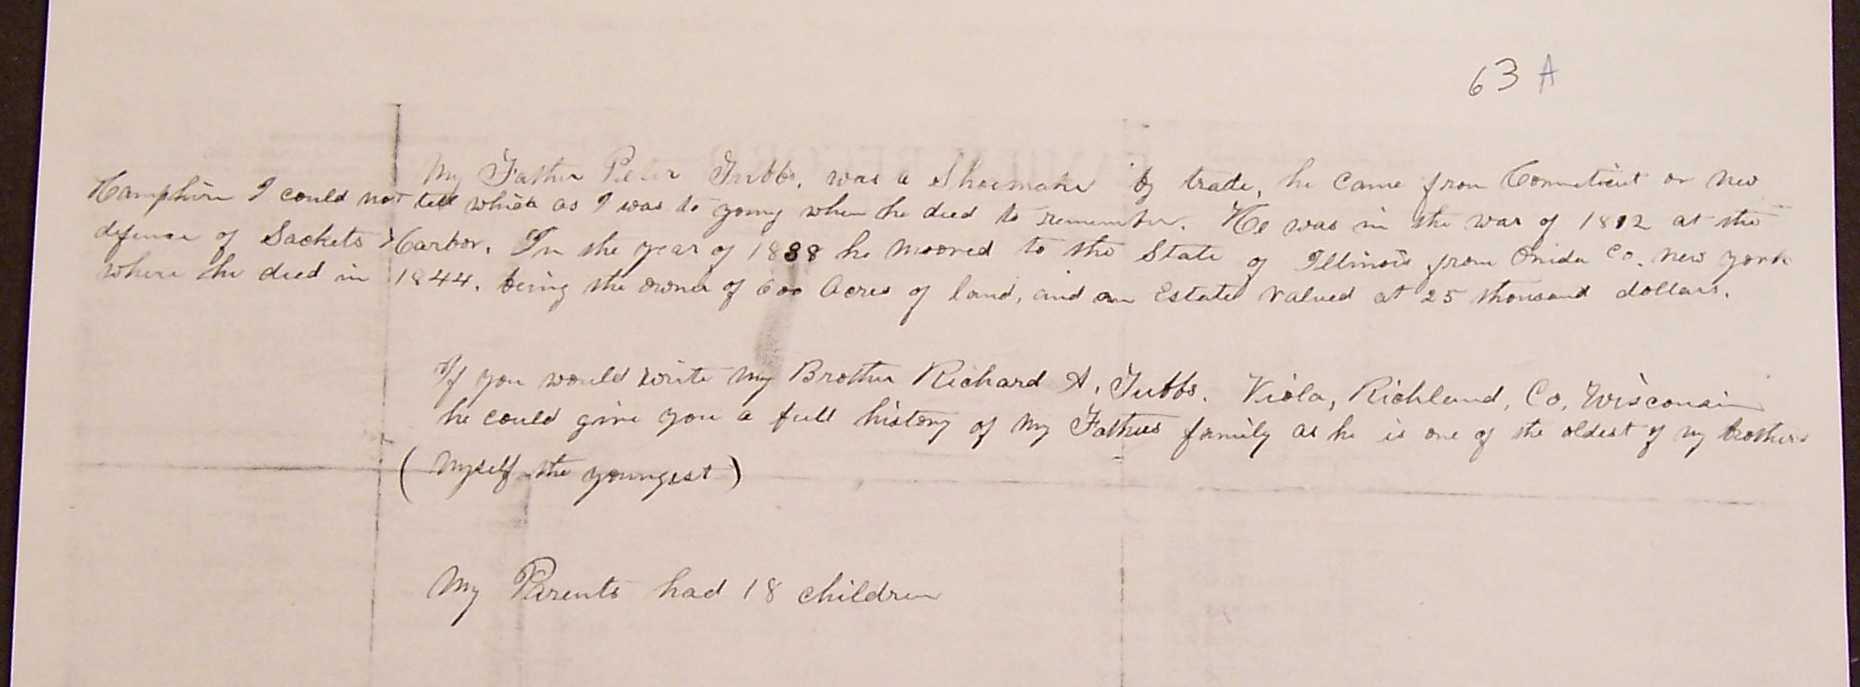 63 A
My Father Peter Tubbs, was a Shoemaker by trade, he came from Conneticut or New
Hampshire I could not tell which as I was to young when he died to remember. He was in the war of 1812 at the
defence of Sackets Harbor. In the year of 1838 he mooved to the State of Illinois from Onida Co. New York
where he died in 1844. being the owner of 600 Acres of land, and an Estate valued at 25 thousand dollars.
If you would write my Brother Richard A. Tubbs. Viola, Richland, Co, Wisconsin
he could give you a full history of my Fathers family as he is one of the oldest of my brothers
( Myself the youngest )
My Parents had 18 children